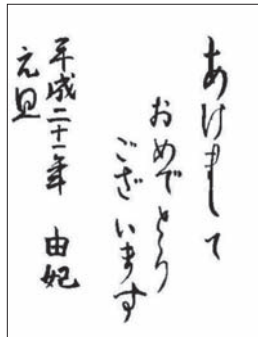 あけまして
おめでとう
ございます
平成二十一年 由妃
元旦